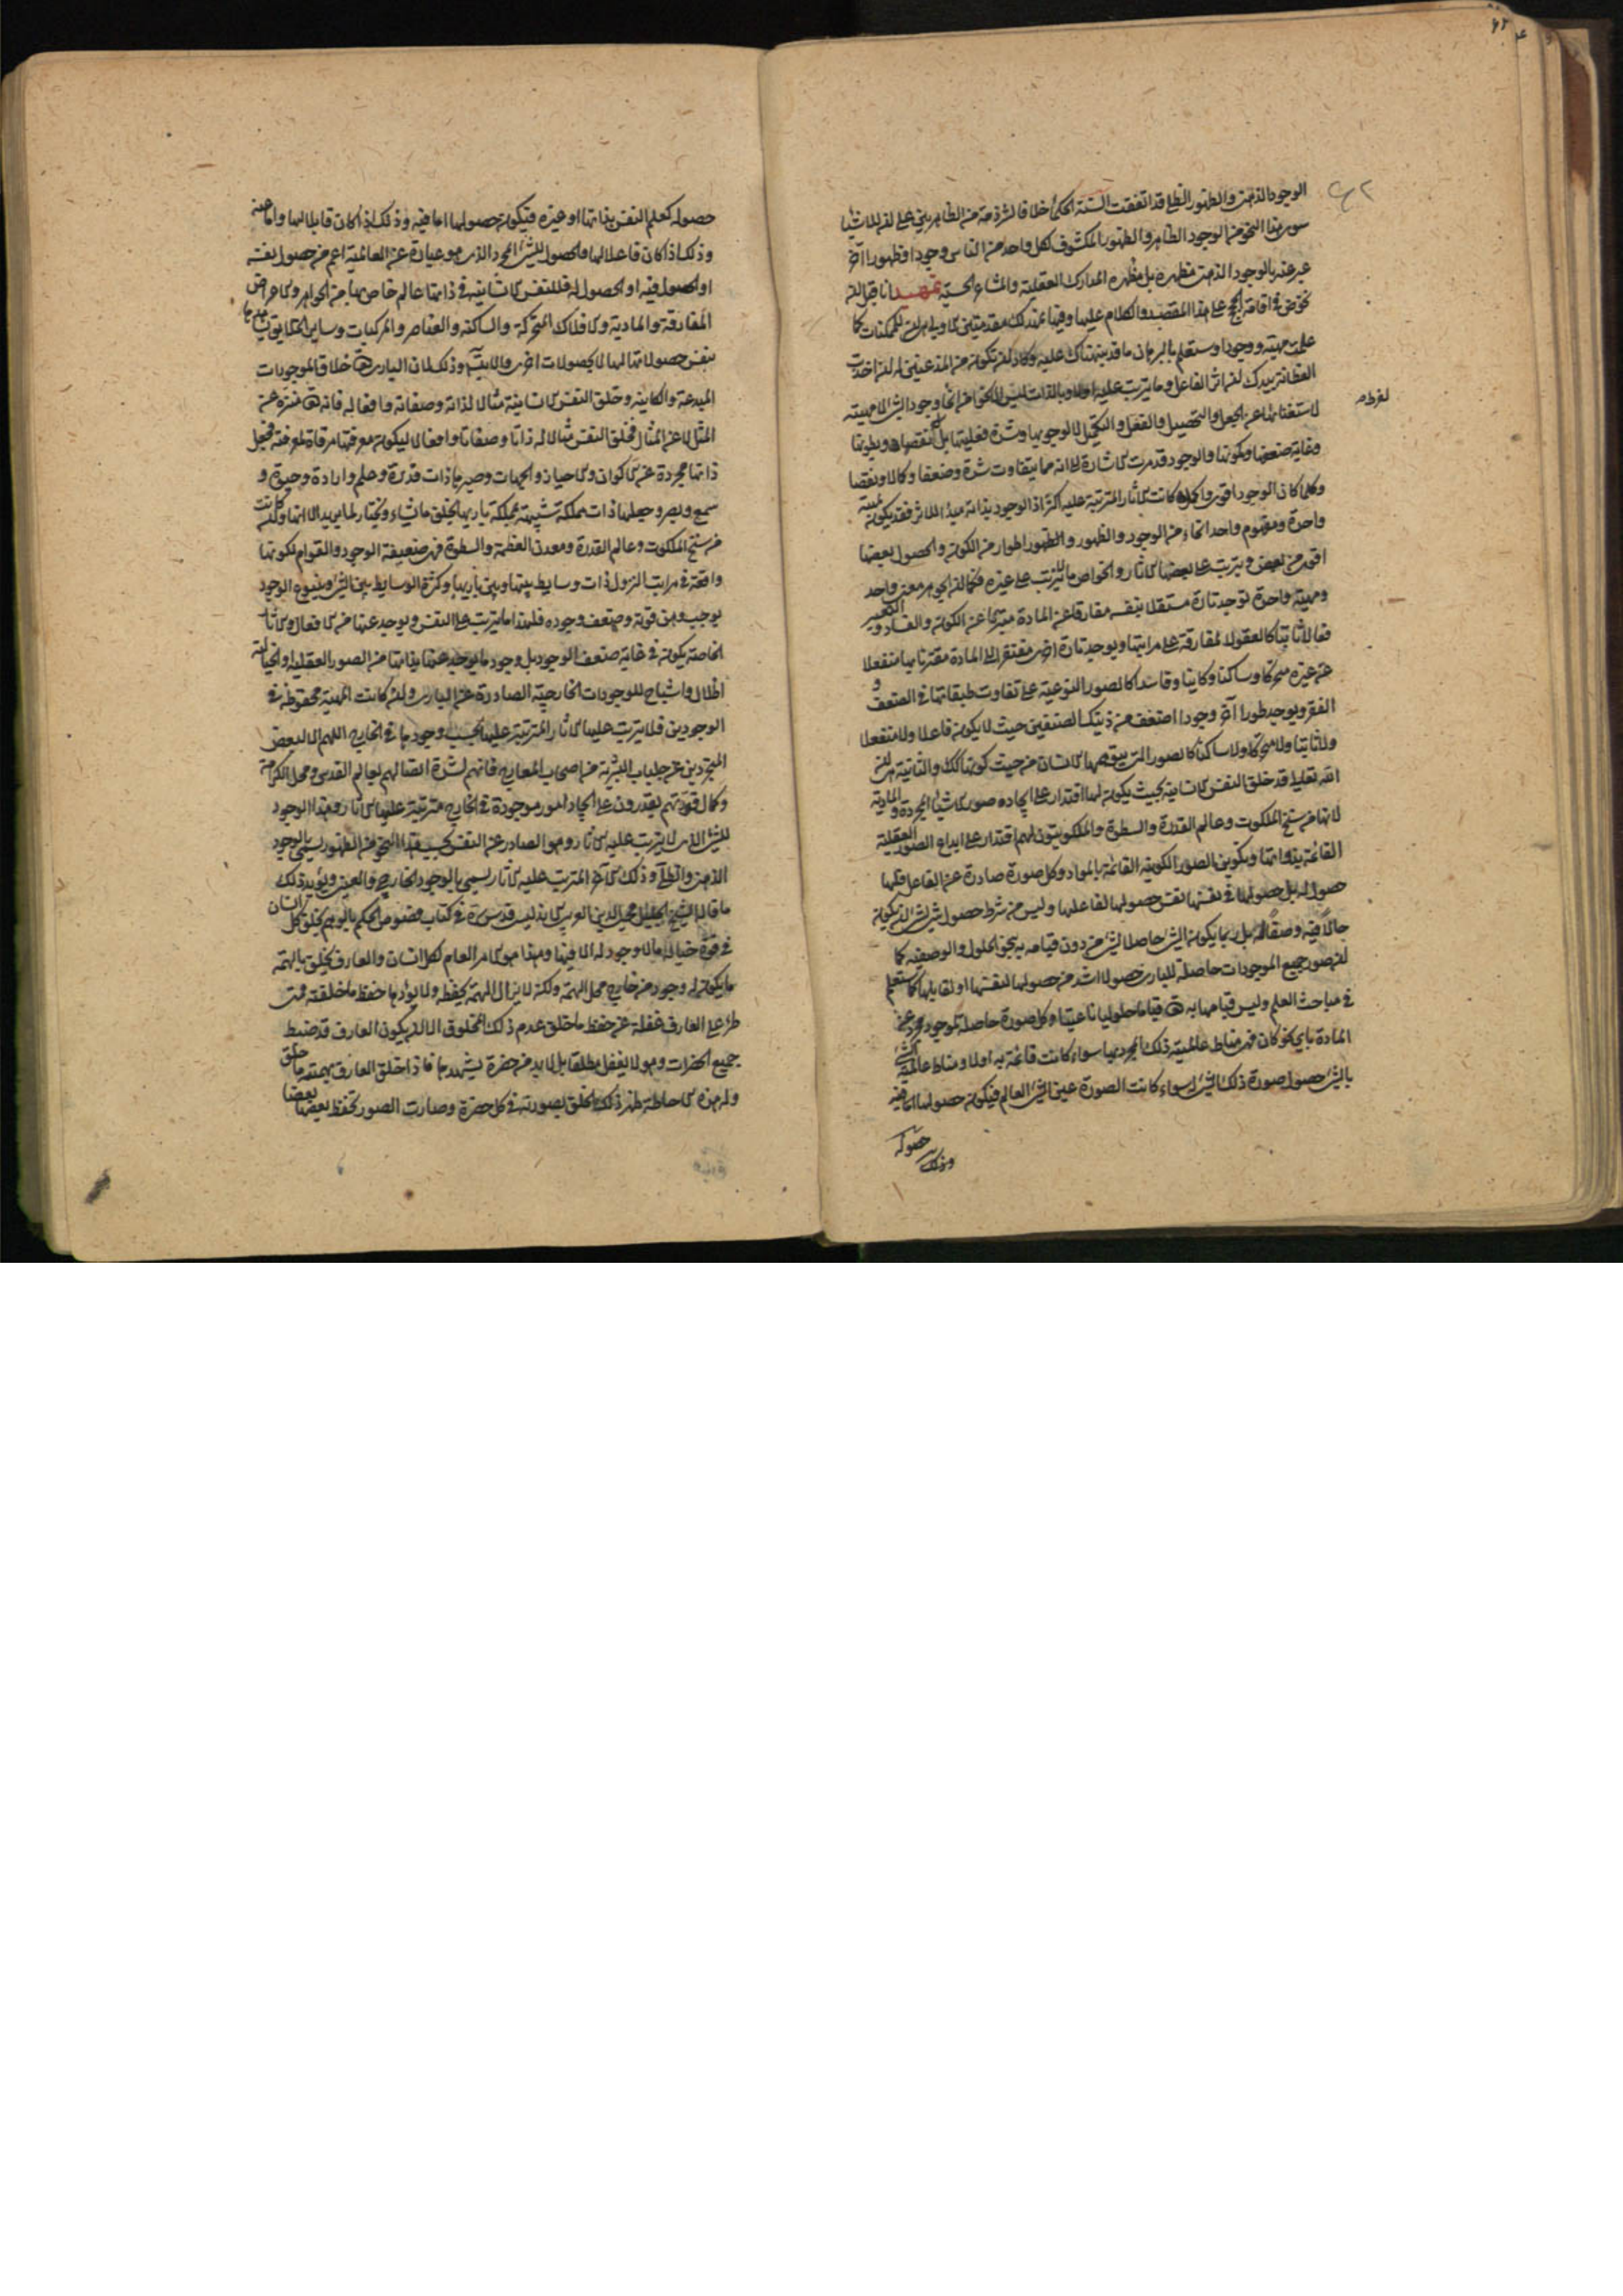 ٦٢
الوجود الذهني والظهور الظلي قد اتفقت السنة الحكماء خلافا لشرذمة من الظاهريين على ان للاشياء
سوى هذا النحو من الوجود الظاهر والظهور المكشوف لكل واحد من الناس وجودا وظهورا آخر
عبر عنه بالوجود الذهني مظهره بل مظهره المدارك العقلية والمشاعر الحسية تمهيد انا قبل ان
نخوض في اقامة الحجج على هذا المقصد والكلام عليها وفيها نمهد لك مقدمتين الاولى هي ان للممكنات كما
علمت مهية ووجودا وستعلم بالبرهان ما قد نبهناك عليه وكاد ان تكون من المذعنين له ان اخذت
الفطانة بيدك ان اثر الفاعل وما يترتب عليه اولا وبالذات ليس الا نحوا من انحاء وجود الشيء لا مهيته
لاستغنائها عن الجعل والتحصيل والفعل والتكميل لا لوجوبها وشدة فعليتها بل لفرط نقصانها وبطونها
وغاية ضعفها وكمونها والوجود قد مرت الاشارة الى انه مما يتفاوت شدة وضعفا وكمالا ونقصا
وكلما كان الوجود اقوى واكمل كانت الاثار المترتبة عليه اكثر اذ الوجود بذاته مبدأ للاثر فقد يكون لمهية
واحدة ومفهوم واحد انحاء من الوجود والظهور واطوار من الكون والحصول بعضها
اقوى من بعض ويترتب على بعضها من الاثار والخواص ما لا يترتب على غيره فكما ان الجوهر معنى واحد
ومهية واحدة توجد تارة مستقلا بنفسه مفارقا عن المادة متبرئا عن الكون والفساد والتغير
فعالا ثابتا كالعقول المفارقة على مراتبها ويوجد تارة اخرى مفتقرا الى المادة مقترنا بها منفعلا
عن غيره متحركا وساكنا وكاينا وفاسدا كالصور النوعية على تفاوت طبقاتها في الضعف و
الفقر ويوجد طورا آخر وجودا اضعف من ذينك الصنفين حيث لا يكون فاعلا ولا منفعلا
ولا ثابتا ولا متحركا ولا ساكنا كالصور التي يتوهمها الانسان من حيث كونها كذلك والثانية هي ان
الله تعالى قد خلق النفس الانسانية بحيث يكون لها اقتدار على ايجاد صور الاشياء المجردة والمادية
لانها من سنخ الملكوت وعالم القدرة والسطوة والملكوتيون لهم اقتدار على ابداع الصور العقلية
القائمة بذواتها وتكوين الصور الكونية القائمة بالمواد وكل صورة صادرة عن الفاعل فلها
حصول له بل حصولها في نفسها نفس حصولها لفاعلها وليس من شرط حصول شيء لشيء ان يكون
حالا فيه وصفا له بل ربما يكون الشيء حاصلا لشيء من دون قيامه به بنحو الحلول والوصفية كما
ان صور جميع الموجودات حاصلة للباري حصولا اشد من حصولها لنفسها او لقابلها كما ستعلم
في مباحث العلم وليس قيامها به تعالى قياما حلوليا ناعتيا وكل صورة حاصلة لموجود مجرد عن
المادة باي نحو كان فهي مناط عالمية ذلك المجرد بها سواء كانت قائمة به او لا ومناط عالمية الشيء
بالشيء حصول صورة ذلك الشيء له سواء كانت الصورة عين الشيء العالم فيكون حصولها اما فيه
حصوله
وذلك
حصوله كعلم النفس بذاتها او غيره فيكون حصولها اما فيه وذلك اذا كان قابلا لها واما عنه
وذلك اذا كان فاعلا لها فالحصول للشيء المجرد الذي هو عبارة عن العالمية اعم من حصول نفسه
او الحصول فيه او الحصول له فللنفس الانسانية في ذاتها عالم خاص بها من الجواهر والاعراض
المفارقة والمادية والافلاك المتحركة والساكنة والعناصر والمركبات وساير الحقايق يشاهدها
بنفس حصولاتها لها لا بحصولات اخرى والا يتسلسل وذلك لان الباري تعالى خلاق الموجودات
المبدعة والكاينة وخلق النفس الانسانية مثالا لذاته وصفاته وافعاله فانه تعالى منزه عن
المثل لا عن المثال فخلق النفس مثالا له ذاتا وصفاتا وافعالا ليكون معرفتها مرقاة لمعرفته فجعل
ذاتها مجردة عن الاكوان والاحيان والجهات وصيرها ذات قدرة وعلم وارادة وحيوة و
سمع وبصر وجعلها ذات مملكة شبيهة بمملكة باريها يخلق ما يشاء ويختار لما يريد الا انها وان كانت
من سنخ الملكوت وعالم القدرة ومعدن العظمة والسطوة فهي ضعيفة الوجود والقوام لكونها
واقعة في مراتب النزول ذات وسايط بينها وبين باريها وكثرة الوسايط بين الشيء وينبوع الوجود
يوجب وهن قوته وضعف وجوده فلهذا ما يترتب على النفس ويوجد عنها من الافعال والاثار
الخاصة يكون في غاية ضعف الوجود بل وجود ما يوجد عنها بذاتها من الصور العقلية والخيالية
اظلال واشباح للوجودات الخارجية الصادرة عن الباري وان كانت المهية محفوظة في
الوجودين فلا يترتب عليها الاثار المترتبة عليها بحسب وجودها في الخارج اللهم الا لبعض
المتجردين عن جلباب البشرية من اصحاب المعارج فانهم لشدة اتصالهم بعالم القدس ومحل الكرامة
وكمال قوتهم يقدرون على ايجاد امور موجودة في الخارج مترتبة عليها الاثار وهذا الوجود
للشيء الذي لا يترتب عليه الاثار وهو الصادر عن النفس بحسب هذا النحو من الظهور يسمى بالوجود
الذهني والظلي وذلك الآخر المترتب عليه الاثار يسمى بالوجود الخارجي والعيني ويؤيد ذلك
ما قاله الشيخ الجليل محيى الدين العربي الاندلسي قدس سره في كتاب فصوص الحكم بالوهم يخلق كل انسان
في قوة خياله ما لا وجود له الا فيها وهذا هو الامر العام لكل انسان والعارف يخلق بالهمة
ما يكون له وجود من خارج محل الهمة ولكن لا يزال الهمة يحفظه ولا يؤدها حفظ ما خلقته فمتى
طرء على العارف غفلة عن حفظ ما خلق عدم ذلك المخلوق الا ان يكون العارف قد ضبط
جميع الحضرات وهو لا يغفل مطلقا بل لا بد من حضرة يشهدها فاذا خلق العارف بهمته ما خلق
وله هذه الاحاطة ظهر ذلك الخلق بصورته في كل حضرة وصارت الصور تحفظ بعضها بعضا